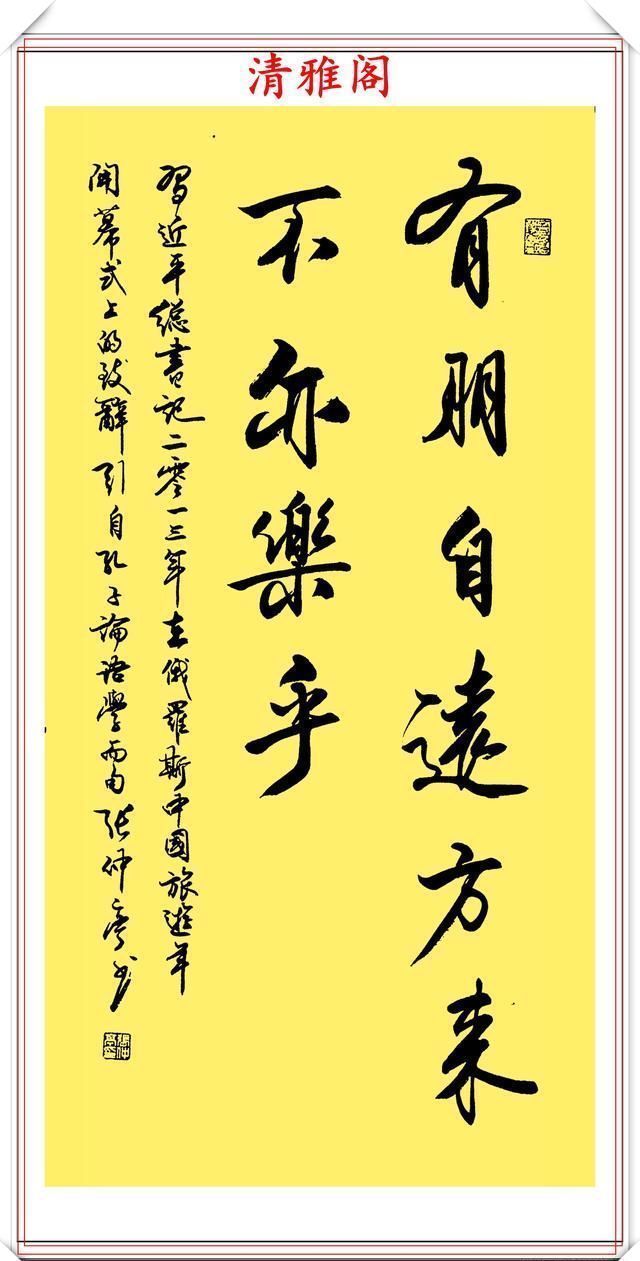 清雅阁
有朋自遠方来
不亦樂乎
習近平總書記二零一三年在俄羅斯中國旅遊年
開幕式上的致辭引自孔子論語學而句張仲亭书